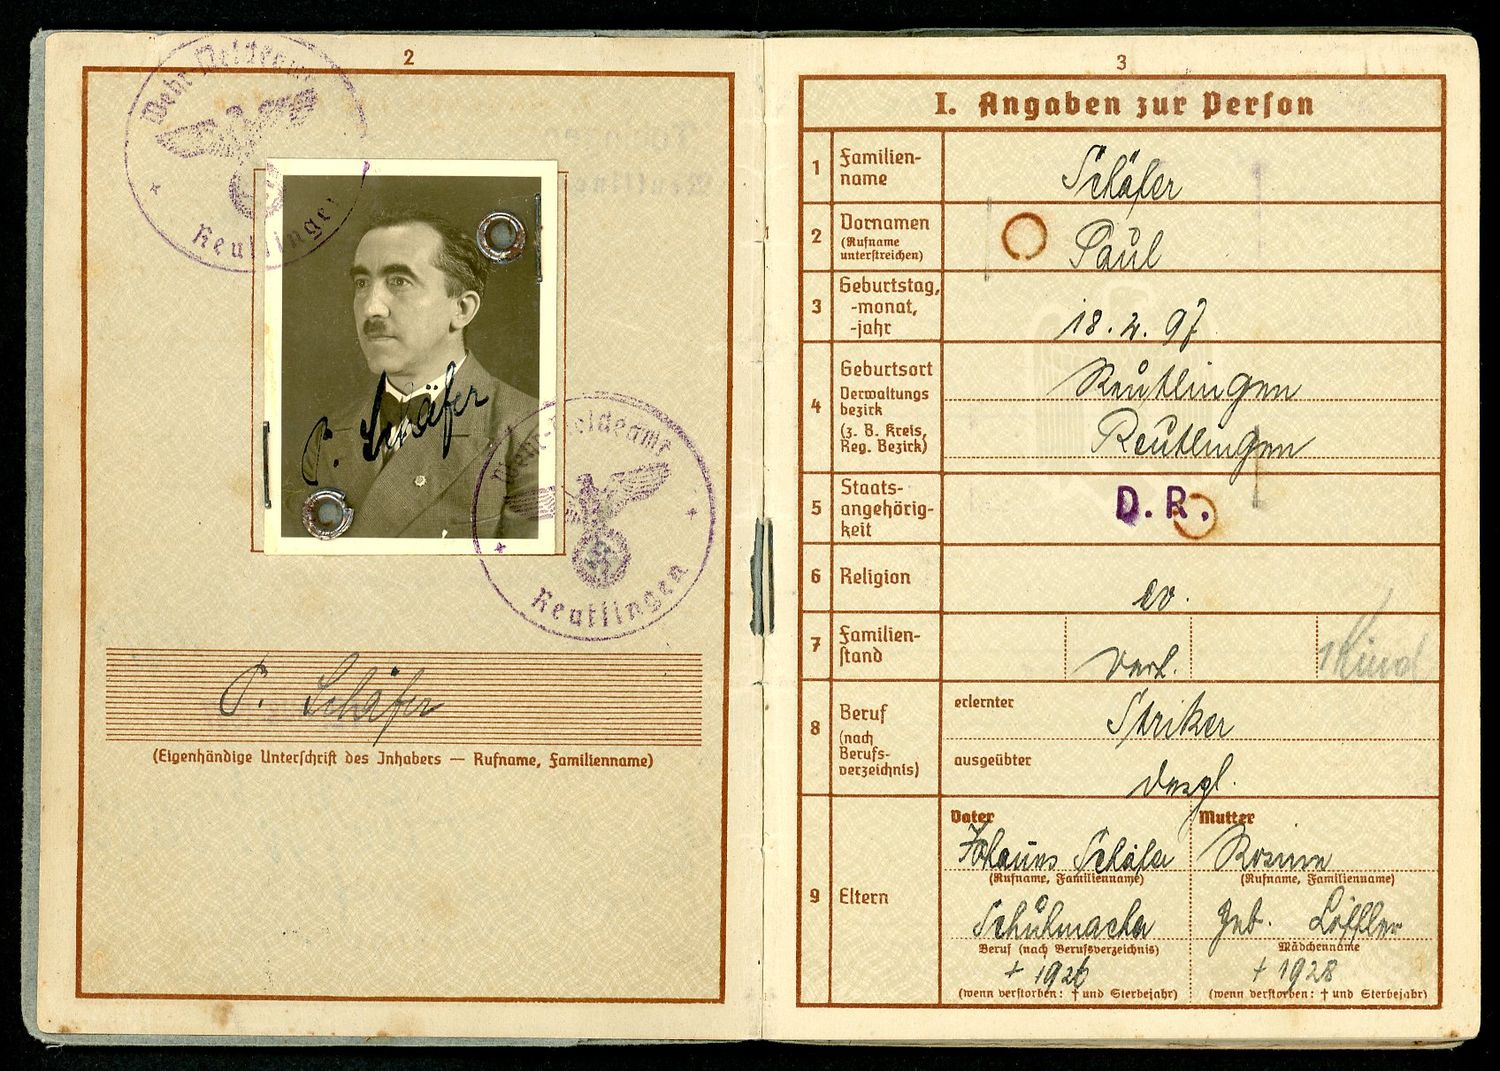 2
Wehr-Meldeamt
Reutlingen
P. Schäfer
Wehr-Meldeamt
Reutlingen
P. Schäfer
(Eigenhändige Unterschrift des Inhabers — Rufname, Familienname)
3
I. Angaben zur Person
1 Familien-
name
Schäfer
2 Vornamen
(Rufname
unterstreichen)
Paul
3 Geburtstag,
-monat,
-jahr
18. 2. 97
4 Geburtsort
Verwaltungs
bezirk
(z. B. Kreis,
Reg. Bezirk)
Reutlingen
Reutlingen
5 Staats-
angehörig-
keit
D.R.
6 Religion
ev.
7 Familien-
stand
verh.
1 Kind
8 Beruf
(nach
Berufs-
verzeichnis)
erlernter
Striker
ausgeübter
desgl.
9 Eltern
Vater
Johannes Schäfer
(Rufname, Familienname)
Schuhmacher
Beruf (nach Berufsverzeichnis)
† 1926
(wenn verstorben: † und Sterbejahr)
Mutter
Rosine
(Rufname, Familienname)
geb. Löffler
Mädchenname
† 1928
(wenn verstorben: † und Sterbejahr)